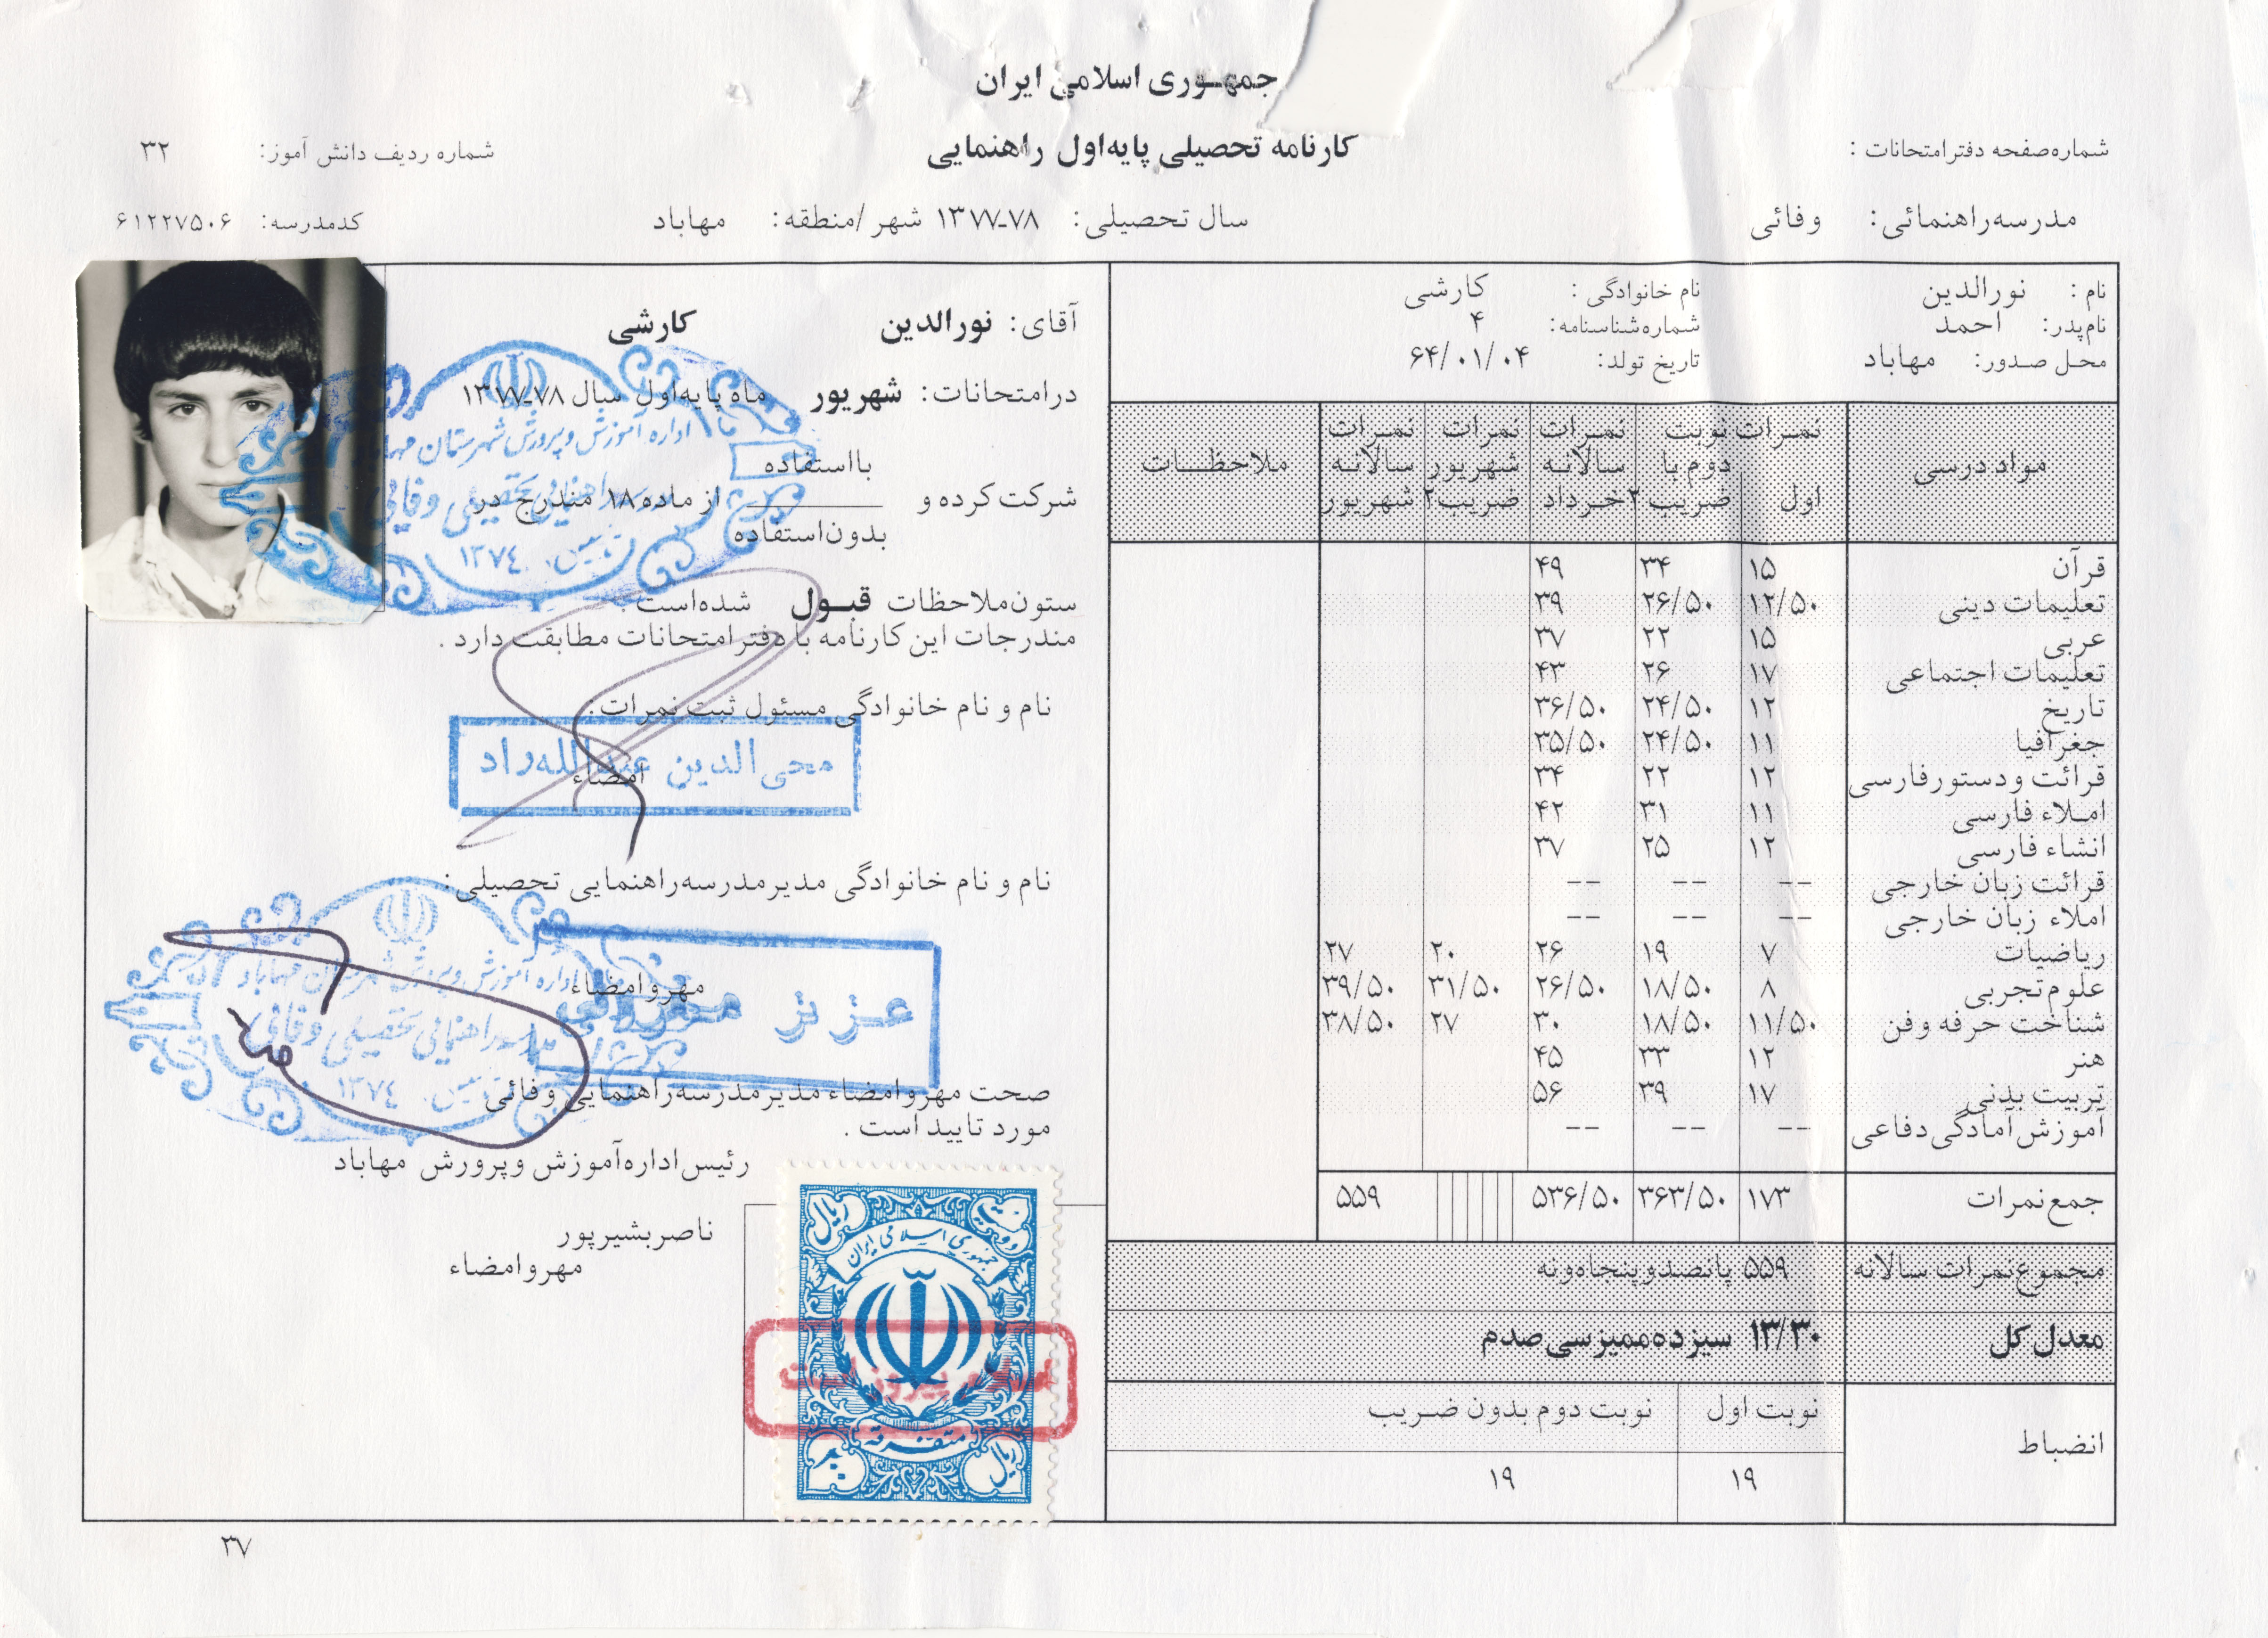 جمهوری اسلامی ایران
کارنامه تحصیلی پایه اول راهنمایی
شماره صفحه دفتر امتحانات :
شماره ردیف دانش آموز: ۳۲
مدرسه راهنمائی: وفائی
سال تحصیلی: ۱۳۷۷-۷۸ شهر/منطقه: مهاباد
کد مدرسه: ۶۱۲۲۷۵۰۶
نام : نورالدین نام خانوادگی : کارشی
نام پدر: احمد شماره شناسنامه: ۴
محل صدور: مهاباد تاریخ تولد: ۶۴/۰۱/۰۴
مواد درسی | نمرات اول | نوبت دوم با ضریب ۲ | نمرات سالانه خرداد | نمرات شهریور ضریب ۲ | نمرات سالانه شهریور | ملاحظات
قرآن ۱۵ ۳۴ ۴۹
تعلیمات دینی ۱۲/۵۰ ۲۶/۵۰ ۳۹
عربی ۱۵ ۲۲ ۳۷
تعلیمات اجتماعی ۱۷ ۲۶ ۴۳
تاریخ ۱۲ ۲۴/۵۰ ۳۶/۵۰
جغرافیا ۱۱ ۲۴/۵۰ ۳۵/۵۰
قرائت و دستور فارسی ۱۲ ۲۲ ۳۴
املاء فارسی ۱۱ ۳۱ ۴۲
انشاء فارسی ۱۲ ۲۵ ۳۷
قرائت زبان خارجی -- -- --
املاء زبان خارجی -- -- --
ریاضیات ۷ ۱۹ ۲۶ ۲۰ ۲۷
علوم تجربی ۸ ۱۸/۵۰ ۲۶/۵۰ ۳۱/۵۰ ۳۹/۵۰
شناخت حرفه و فن ۱۱/۵۰ ۱۸/۵۰ ۳۰ ۲۷ ۳۸/۵۰
هنر ۱۲ ۳۳ ۴۵
تربیت بدنی ۱۷ ۳۹ ۵۶
آموزش آمادگی دفاعی -- -- --
جمع نمرات ۱۷۳ ۳۶۳/۵۰ ۵۳۶/۵۰ ۵۵۹
مجموع نمرات سالانه ۵۵۹ پانصد و پنجاه و نه
معدل کل ۱۳/۳۰ سیزده ممیز سی صدم
انضباط
نوبت اول نوبت دوم بدون ضریب
۱۹ ۱۹
آقای: نورالدین کارشی
در امتحانات: شهریور ماه پایه اول سال ۱۳۷۷-۷۸
با استفاده
شرکت کرده و از ماده ۱۸ مندرج در
بدون استفاده
ستون ملاحظات قبول شده است .
مندرجات این کارنامه با دفتر امتحانات مطابقت دارد .
نام و نام خانوادگی مسئول ثبت نمرات:
محی الدین عبدالله راد
امضاء
نام و نام خانوادگی مدیر مدرسه راهنمایی تحصیلی:
عزیز
مهر و امضاء
صحت مهر و امضاء مدیر مدرسه راهنمایی وفائی
مورد تایید است .
رئیس اداره آموزش و پرورش مهاباد
ناصر بشیرپور
مهر و امضاء
اداره آموزش و پرورش شهرستان مهاباد
مدرسه راهنمایی تحصیلی وفائی
تاسیس ۱۳۷۴
اداره آموزش و پرورش شهرستان مهاباد
مدرسه راهنمایی تحصیلی وفائی
تاسیس ۱۳۷۴
دویست ریال
جمهوری اسلامی ایران
متفرقه
ریال
۳۷